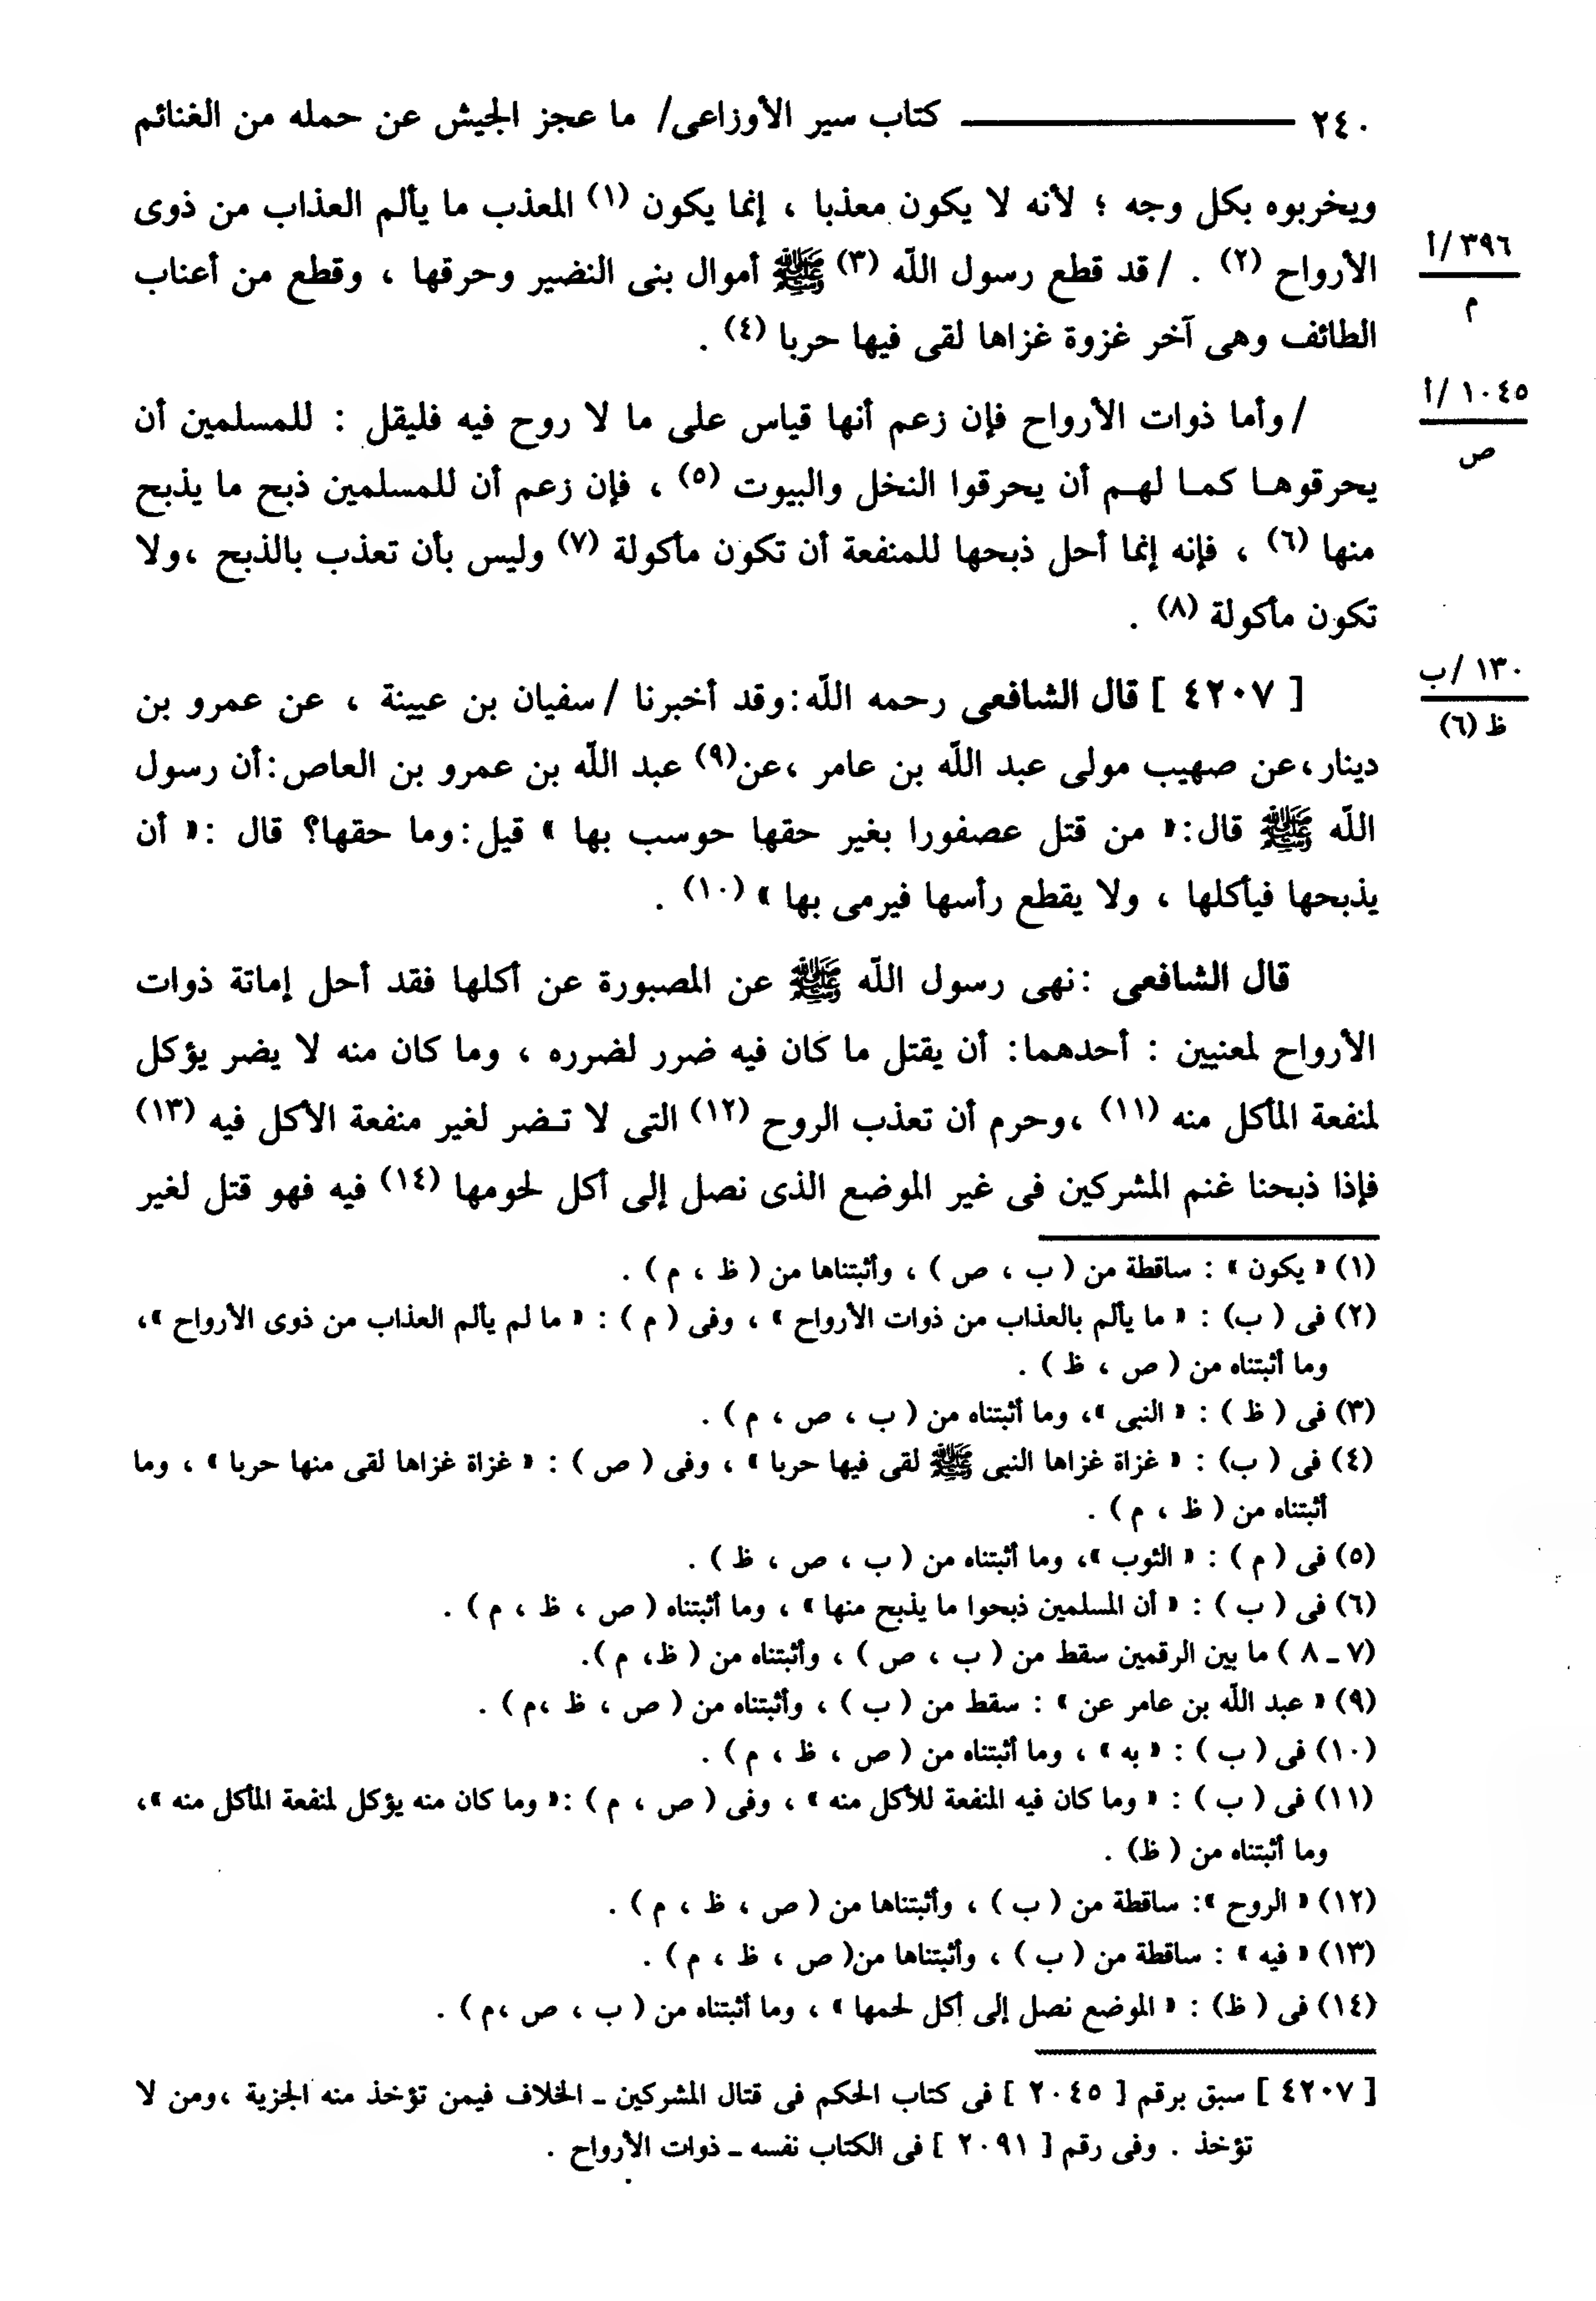 ٢٤٠ ــــــــــــــ كتاب سير الأوزاعى/ ما عجز الجيش عن حمله من الغنائم
ويخربوه بكل وجه ؛ لأنه لا يكون معذبا ، إنما يكون (١) المعذب ما يألم العذاب من ذوى
٣٩٦/أ
م
الأرواح (٢) . / قد قطع رسول الله (٣) ﷺ أموال بنى النضير وحرقها ، وقطع من أعناب
الطائف وهى آخر غزوة غزاها لقى فيها حربا (٤) .
١٠٤٥/أ
ص
/ وأما ذوات الأرواح فإن زعم أنها قياس على ما لا روح فيه فليقل : للمسلمين أن
يحرقوها كما لهم أن يحرقوا النخل والبيوت (٥) ، فإن زعم أن للمسلمين ذبح ما يذبح
منها (٦) ، فإنه إنما أحل ذبحها للمنفعة أن تكون مأكولة (٧) وليس بأن تعذب بالذبح ،ولا
تكون مأكولة (٨) .
١٣٠/ب
ظ (٦)
[ ٤٢٠٧ ] قال الشافعى رحمه الله:وقد أخبرنا / سفيان بن عيينة ، عن عمرو بن
دينار،عن صهيب مولى عبد الله بن عامر ،عن(٩) عبد الله بن عمرو بن العاص:أن رسول
الله ﷺ قال:« من قتل عصفورا بغير حقها حوسب بها » قيل:وما حقها؟ قال :« أن
يذبحها فيأكلها ، ولا يقطع رأسها فيرمى بها » (١٠) .
قال الشافعى :نهى رسول الله ﷺ عن المصبورة عن أكلها فقد أحل إماتة ذوات
الأرواح لمعنيين : أحدهما: أن يقتل ما كان فيه ضرر لضرره ، وما كان منه لا يضر يؤكل
لمنفعة المأكل منه (١١) ،وحرم أن تعذب الروح (١٢) التى لا تضر لغير منفعة الأكل فيه (١٣)
فإذا ذبحنا غنم المشركين فى غير الموضع الذى نصل إلى أكل لحومها (١٤) فيه فهو قتل لغير
(١) « يكون » : ساقطة من ( ب ، ص ) ، وأثبتناها من ( ظ ، م ) .
(٢) فى ( ب) : « ما يألم بالعذاب من ذوات الأرواح » ، وفى ( م ) : « ما لم يألم العذاب من ذوى الأرواح »،
وما أثبتناه من ( ص ، ظ ) .
(٣) فى ( ظ ) : « النبى »، وما أثبتناه من ( ب ، ص ، م ) .
(٤) فى ( ب) : « غزاة غزاها النبى ﷺ لقى فيها حربا » ، وفى ( ص ) : « غزاة غزاها لقى منها حربا » ، وما
أثبتناه من ( ظ ، م ) .
(٥) فى ( م ) : « الثوب »، وما أثبتناه من ( ب ، ص ، ظ ) .
(٦) فى ( ب ) : « أن المسلمين ذبحوا ما يذبح منها » ، وما أثبتناه ( ص ، ظ ، م ) .
(٧ ـ ٨ ) ما بين الرقمين سقط من ( ب ، ص ) ، وأثبتناه من ( ظ، م ).
(٩) « عبد الله بن عامر عن » : سقط من ( ب ) ، وأثبتناه من ( ص ، ظ ،م ) .
(١٠) فى ( ب ) : « به » ، وما أثبتناه من ( ص ، ظ ، م ) .
(١١) فى ( ب ) : « وما كان فيه المنفعة للأكل منه » ، وفى ( ص ، م ) :« وما كان منه يؤكل لمنفعة المأكل منه »،
وما أثبتناه من ( ظ) .
(١٢) « الروح »: ساقطة من ( ب ) ، وأثبتناها من ( ص ، ظ ، م ) .
(١٣) « فيه » : ساقطة من ( ب ) ، وأثبتناها من( ص ، ظ ، م ) .
(١٤) فى ( ظ) : « الموضع نصل إلى أكل لحمها » ، وما أثبتناه من ( ب ، ص ،م ) .
[ ٤٢٠٧ ] سبق برقم [ ٢٠٤٥ ] فى كتاب الحكم فى قتال المشركين ـ الخلاف فيمن تؤخذ منه الجزية ،ومن لا
تؤخذ . وفى رقم [ ٢٠٩١ ] فى الكتاب نفسه ـ ذوات الأرواح .